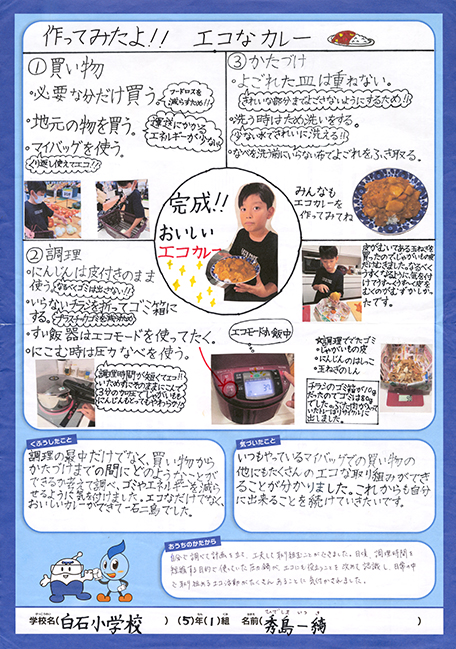 作ってみたよ!! エコなカレー
①買い物
・必要な分だけ買う。
フードロスを
減らすため!!
・地元の物を買う。
運送にかかる
エネルギーが少ない!!
・マイバッグを使う。
くり返し使えてエコ!!
③かたづけ
・よごれた皿は重ねない。
きれいな部分までよごさないようにするため!!
・洗う時はため洗いをする。
少ない水できれいに洗える!!
・なべを洗う前にいらない布でよごれをふき取る。
完成!!
おいしい
エコカレー
みんなも
エコカレーを
作ってみてね
②調理
・にんじんは皮付きのまま
使う。
なるべくゴミは出さない!!
・いらないチラシを折ってゴミ箱に
する。
プラスチックゴミを減らすため
・すい飯器はエコモードを使ってたく。
・にこむ時は圧力なべを使う。
調理時間が短くてエコ!!
エコモードすい飯中
皮がむいてある玉ねぎを
買ったのでじゃがいもの皮
だけむきました。
たです。
☆調理ででたゴミ
・じゃがいもの皮
・にんじんのはしっこ
・玉ねぎのしん
チラシのゴミ箱が10g
だったのでゴミは80g
でした。
に出しました。
くふうしたこと
調理の最中だけでなく、買い物から
かたづけまでの間にどのようなくふうが
できるか考えて調べ、ゴミやエネルギーを減ら
せるように気を付けました。エコなだけでなく、
おいしいカレーができて一石二鳥でした。
気づいたこと
いつもやっているマイバッグでの買い物の
他にもたくさんのエコな取り組みができ
ることが分かりました。これからも自分
に出来ることを続けていきたいです。
おうちのかたから
自分で調べて計画を立て、工夫して取り組むことができました。日頃、調理時間を
で取り組めるエコ活動がたくさんあることに気付かされました。
学校名(白石小学校) (5)年(1)組 名前(秀島一綺)